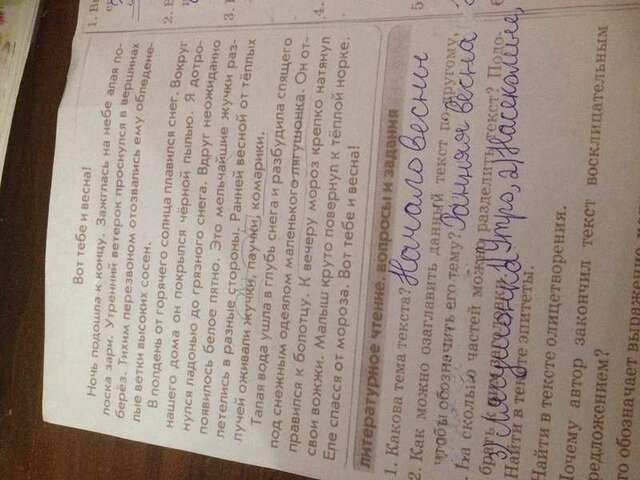 1. В
2. В
3. Н
4.
5
Вот тебе и весна!
Ночь подошла к концу. Зажглась на небе алая по-
лоска зари. Утренний ветерок проснулся в вершинах
берёз. Тихим перезвоном отозвались ему обледене-
лые ветки высоких сосен.
В полдень от горячего солнца плавился снег. Вокруг
нашего дома он покрылся чёрной пылью. Я дотро-
нулся ладонью до грязного снега. Вдруг неожиданно
появилось белое пятно. Это мельчайшие жучки раз-
летелись в разные стороны. Ранней весной от тёплых
лучей оживали жучки, паучки, комарики.
Талая вода ушла в глубь снега и разбудила спящего
под снежным одеялом маленького лягушонка. Он от-
правился к болотцу. К вечеру мороз крепко натянул
свои вожжи. Малыш круто повернул к тёплой норке.
Еле спасся от мороза. Вот тебе и весна!
литературное чтение, вопросы и задания
1. Какова тема текста? Начало весны
2. Как можно озаглавить данный текст по-другому,
чтобы обозначить его тему? Ранняя весна
На сколько частей можно разделить текст? Подо-
1) Утро, 2) Насекомые,
3) Лягушонка
Найти в тексте эпитеты.
Найти в тексте олицетворения.
Почему автор закончил текст восклицательным
предложением?
то обозначает выражение